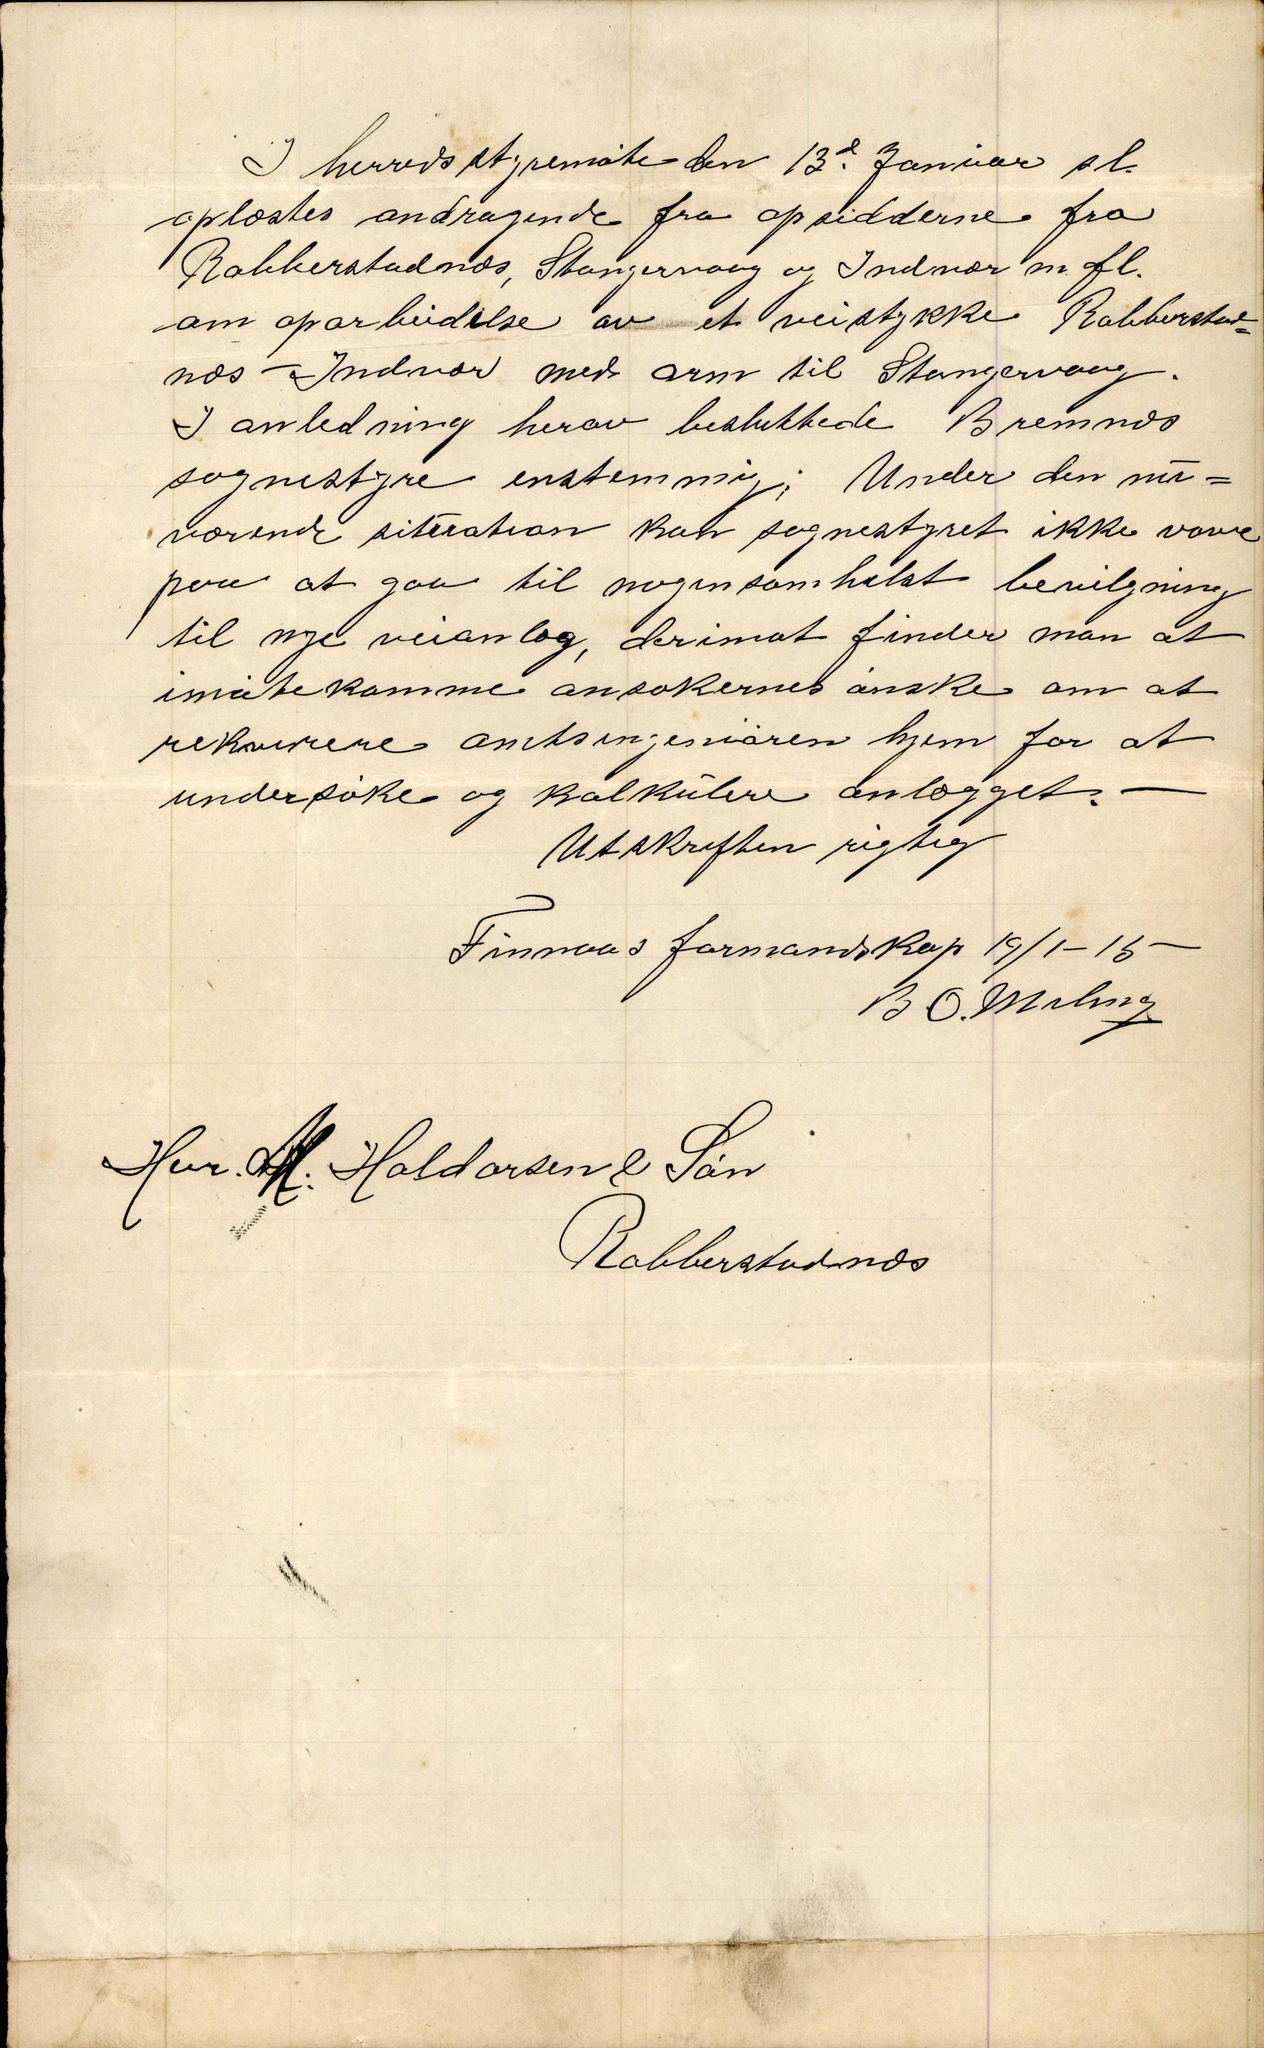 I herredsstyremøte den 13d. Januar sl.
oplæstes andragende fra opsidderne fra
Rabberstadnæs, Stangervaag og Indvær m. fl.
om oparbeidelse av et veistykke Rabberstad=
næs – Indvær med arm til Stangervaag.
I anledning herav besluttede Bremnæs
sognestyre enstemmig; Under den nu=
værende situation kan sognestyret ikke vove
paa at gaa til nogensomhelst bevilgning
til nye veianlæg, derimot finder man at
imøtekomme ansøkernes ønske om at
rekvirere amtsingeniøren hjem for at
undersøke og kalkulere anlægget. —
Utskriften rigtig
Finnaas formandskap 19/1 – 15 –
B. O. Meling
Herr. M. Haldorsen & Søn
Rabberstadnæs